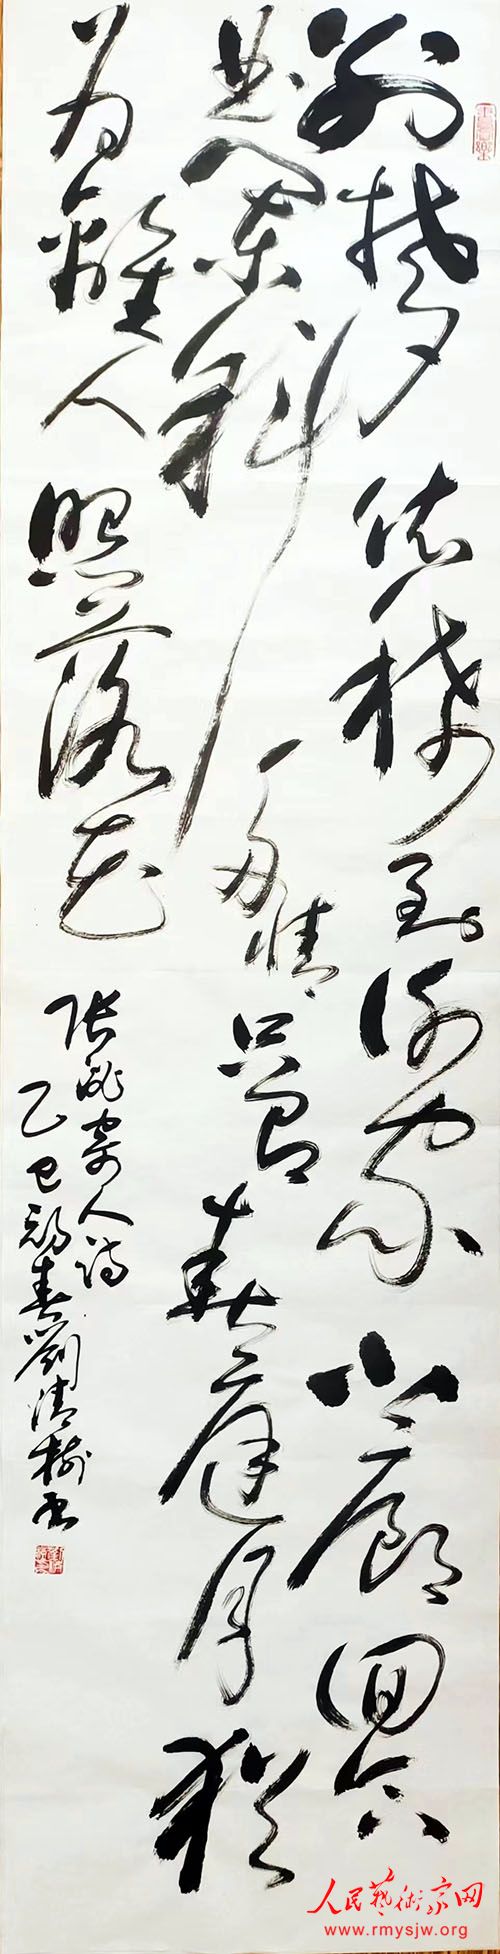 别梦依稀到谢家小廊回合
曲阑斜多情只有春庭月犹
为離人照落花
张泌寄人诗
乙巳初春劉清树书
人民藝術家网
www.rmysjw.org